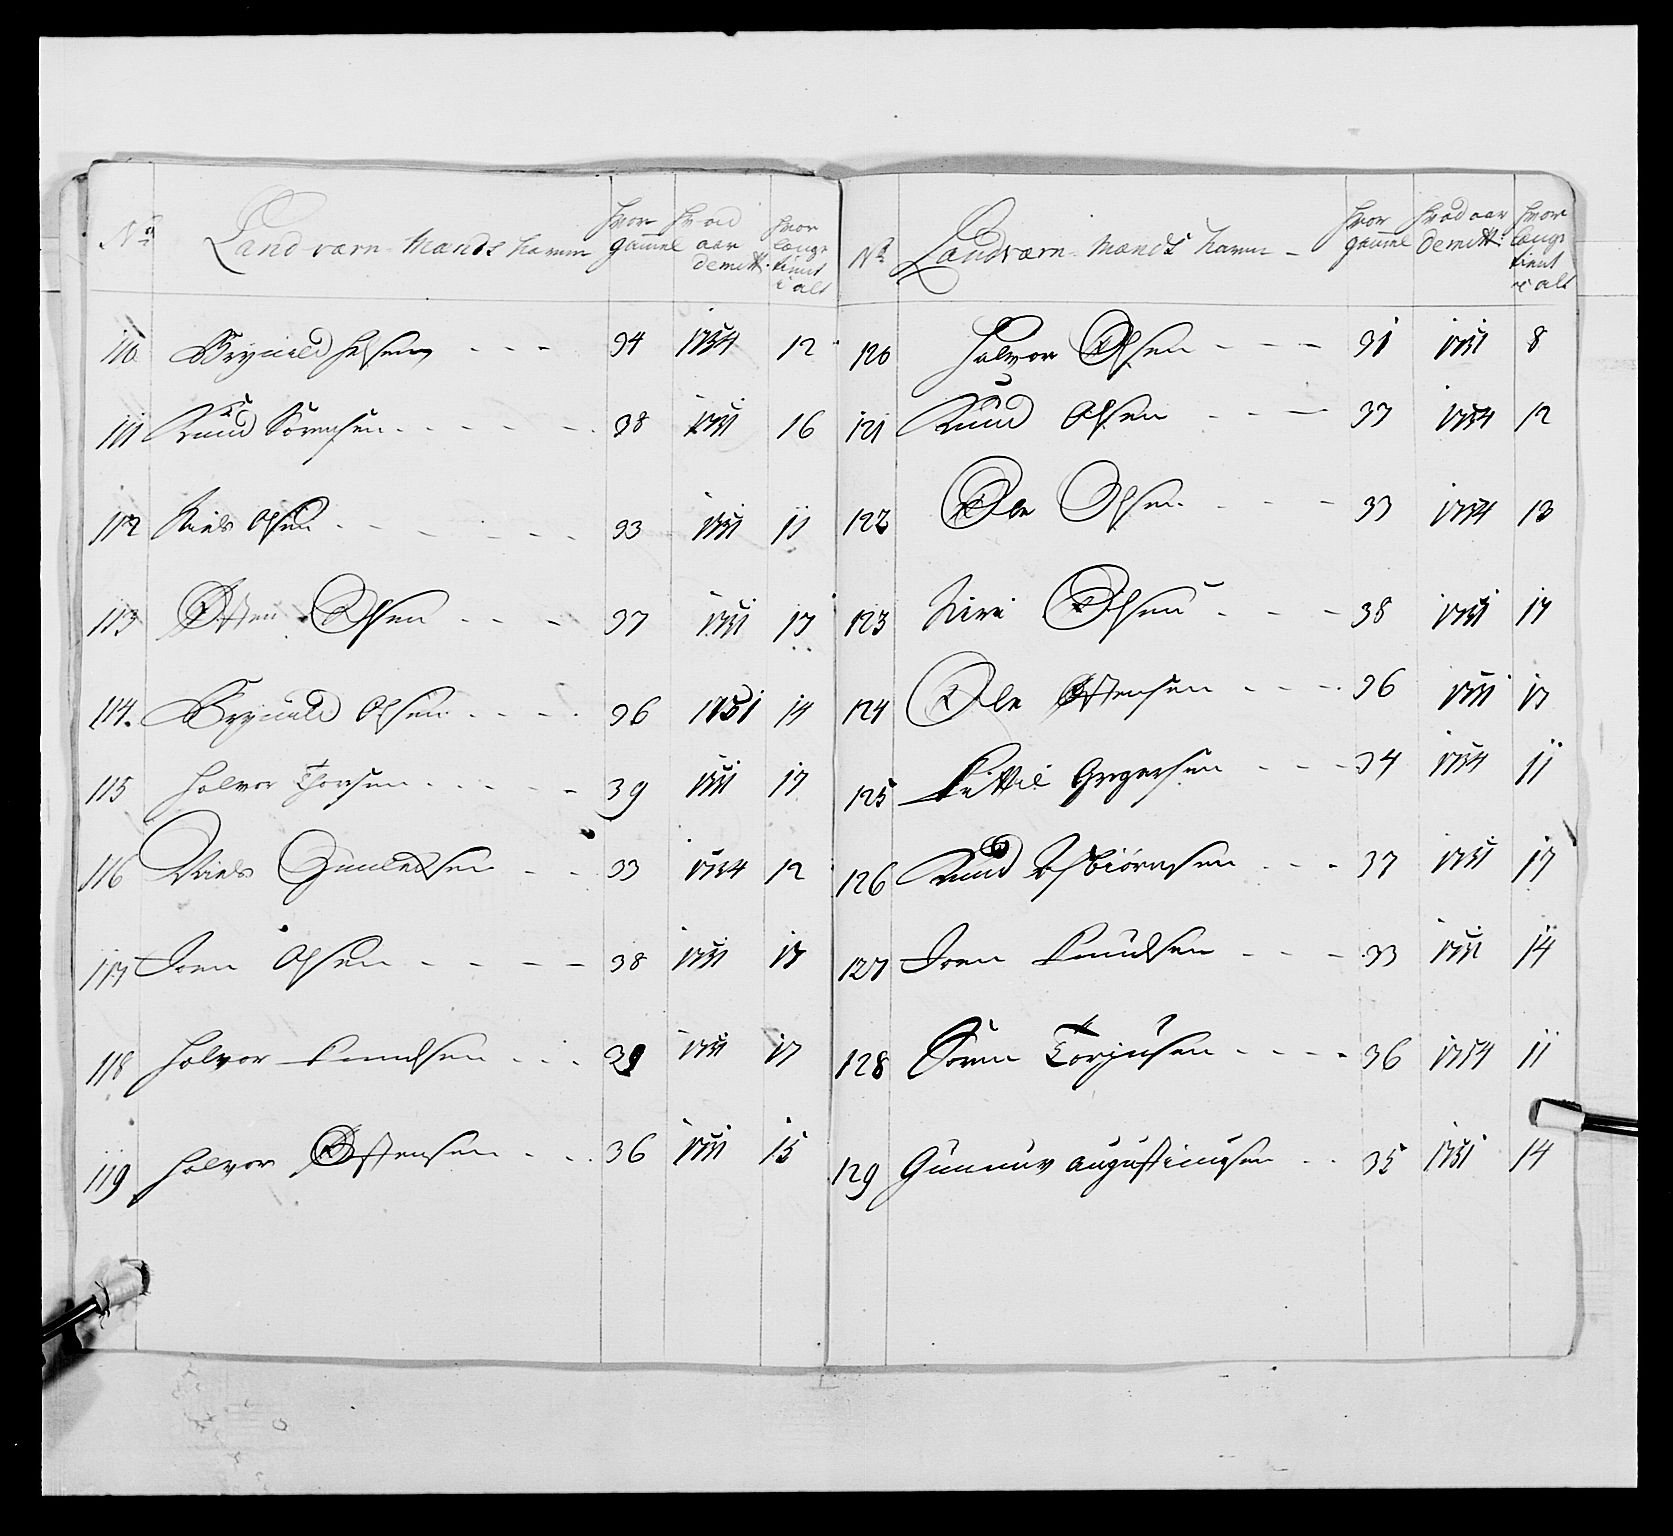 No
Landværn-Mands Navn
hvor gammel
hvad aar demitt:
hvor længe tient i alt
110 Brynild 34 1754 12
111 Knud Sørensen 38 1751 16
112 Niels Olsen 33 1751 11
113 Østen Olsen 37 1751 17
114. Brynild Olsen 36 1751 14
115 Halvor Thorsen 39 1751 17
116 Niels Gunleksen 33 1754 12
117 Joen Olsen 38 1751 17
118 Halvor Knudsen 39 1751 17
119 Halvor Østensen 36 1751 15
No
Landværn-Mands Navn
hvor gammel
hvad aar demitt:
hvor længe tient i alt
120 Halvor Olsen 31 1751 8
121 Knud Olsen 37 1754 12
122 Ole Olsen 33 1754 13
123 Kiri Olsen 38 1751 17
124 Ole Østensen 36 1751 17
125 Kittil Gregersen 34 1754 11
126 Knud Asbiørnsen 37 1751 17
127 Joen Knudsen 33 1751 14
128 Søren Torjusen 36 1754 11
129 Gunnuv Augustinusen 35 1751 14